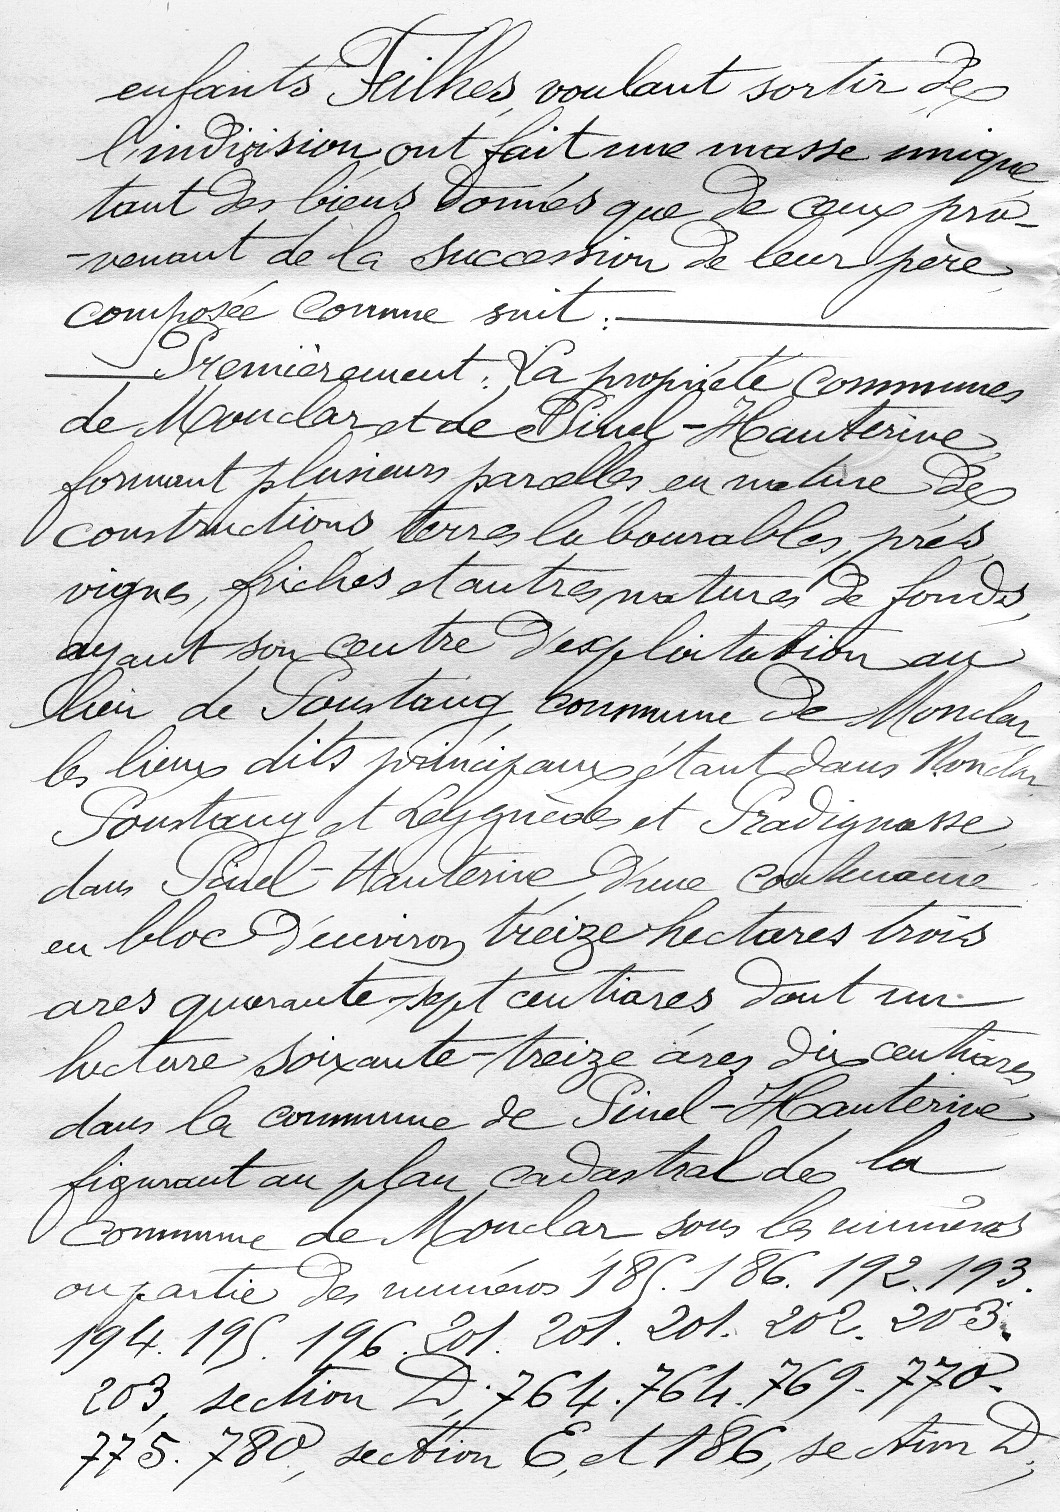 enfants Feilhes, voulant sortir de
l'indivision, ont fait une masse unique
tant des biens donnés que de ceux pro-
-venant de la succession de leur père,
composée comme suit :
Premièrement : La propriété communes
de Monclar et de Pinel-Hauterive,
formant plusieurs parcelles, en nature de
constructions, terres labourables, prés,
vignes, friches et autres natures de fonds,
ayant son centre d'exploitation au
lieu de Poustang, commune de Monclar
les lieux dits principaux étant dans Monclar
Poustang et et Pradignasse,
dans Pinel-Hauterive, d'une contenance
en bloc d'environ treize hectares trois
ares quarante-sept centiares, dont un
hectare soixante-treize ares dix centiares
dans la commune de Pinel-Hauterive,
figurant au plan cadastral de la
commune de Monclar sous les numéros
ou partie des numéros 185. 186. 192. 193.
194. 195. 196. 201. 201. 201. 202. 203.
203, section D; 764. 764. 769. 770.
775. 780, section E, et 186, section D;